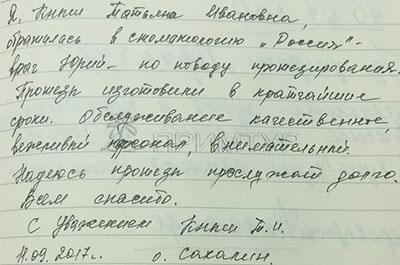 Я, Кныш Татьяна Ивановна,
обратилась в стоматологию „Россия" -
врач Юрий - по поводу протезирования.
Протезы изготовили в кратчайшие
сроки. Обслуживание качественное,
вежливый персонал, внимательный.
Надеюсь протезы прослужат долго.
Всем спасибо.
С Уважением Кныш Т.И.
11.09.2017г. о. Сахалин.